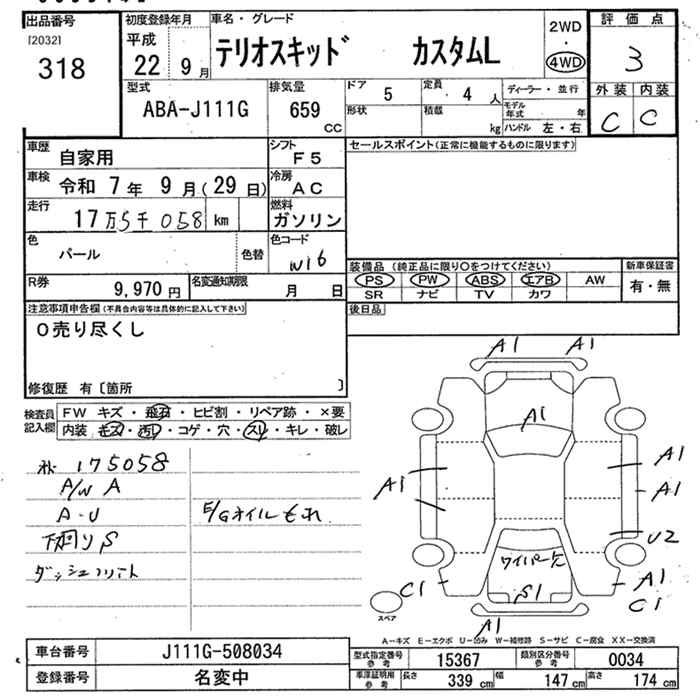 出品番号 初度登録年月 車名・グレード 2WD 評価点
[2032] 平成 テリオスキッド カスタムL ・ 3
318 22 9月 4WD
型式 排気量 ドア 5 定員 4人 ディーラー・並行 外装 内装
ABA-J111G 659 CC 形状 積載 kg モデル年式 年 C C
ハンドル 左・右
車歴 自家用 シフト F5 セールスポイント(正常に機能するものに限ります)
車検 令和 7年 9月(29日) 冷房 AC
走行 17万5千058 km 燃料 ガソリン
色 パール 色替 色コード W16
装備品 (純正品に限り○をつけてください) 新車保証書
R券 9,970円 名変通知期限 月 日 PS PW ABS エアB AW 有・無
SR ナビ TV カワ
注意事項申告欄(不具合内容等は具体的に記入して下さい) 後日品
O売り尽くし
修復歴 有〔箇所 〕
検査員 FW キズ・飛石・ヒビ割・リペア跡・×要
記入欄 内装 キズ・汚レ・コゲ・穴・スリ・キレ・破レ
175058
A/W A
A-U E/Gオイルもれ
下廻りS
A1 A1
A1
A1 A1
A1
U2
ワイパー欠
C1 S1 A1
C1
スペア
A1
A-キズ E-エクボ U-凹み W-補修跡 S-サビ C-腐食 XX-交換済
車台番号 J111G-508034 型式指定番号 参考 15367 類別区分番号 参考 0034
登録番号 名変中 車庫証明用 参考 長さ 339 cm 幅 147 cm 高さ 174 cm